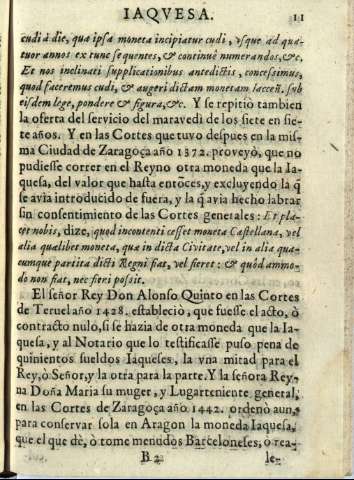 IAQVESA. 11
cudi à die, qua ipsa moneta incipiatur cudi, vsque ad qua-
tuor annos ex tunc sequentes, & continuè numerandos, &c.
Et nos inclinati supplicationibus antedictis, concessimus,
quod faceremus cudi, & augeri dictam monetam Iacceñ. sub
eisdem lege, pondere & figura, &c. Y se repitiò tambien
la oferta del servicio del maravedì de los siete en sie-
te años. Y en las Cortes que tuvo despues en la mis-
ma Ciudad de Zaragoça año 1372. proveyò, que no
pudiesse correr en el Reyno otra moneda que la Ia-
quesa, del valor que hasta entõces, y excluyendo la q̃
se avia introducido de fuera, y la q̃ avia hecho labrar
sin consentimiento de las Cortes generales: Et pla-
cet nobis, dize, quod incontenti cesset moneta Castellana, vel
alia qualibet moneta, quæ in dicta Civitate, vel in alia qua-
cumque partita dicti Regni fiat, vel fieret: & quòd ammo-
do non fiat, nec fieri possit.
El señor Rey Don Alonso Quinto en las Cortes
de Teruel año 1428. estableciò, que fuesse el acto, ò
contracto nulo, si se hazia de otra moneda que la Ia-
quesa, y al Notario que lo testificasse puso pena de
quinientos sueldos Iaqueses, la vna mitad para el
Rey, ò Señor, y la otra para la parte. Y la señora Rey-
na Doña Maria su muger, y Lugarteniente general,
en las Cortes de Zaragoça año 1442. ordenò aun,
para conservar sola en Aragon la moneda Iaquesa,
que el que dè, ò tome menudos Barceloneses, ò rea-
B 2 le-